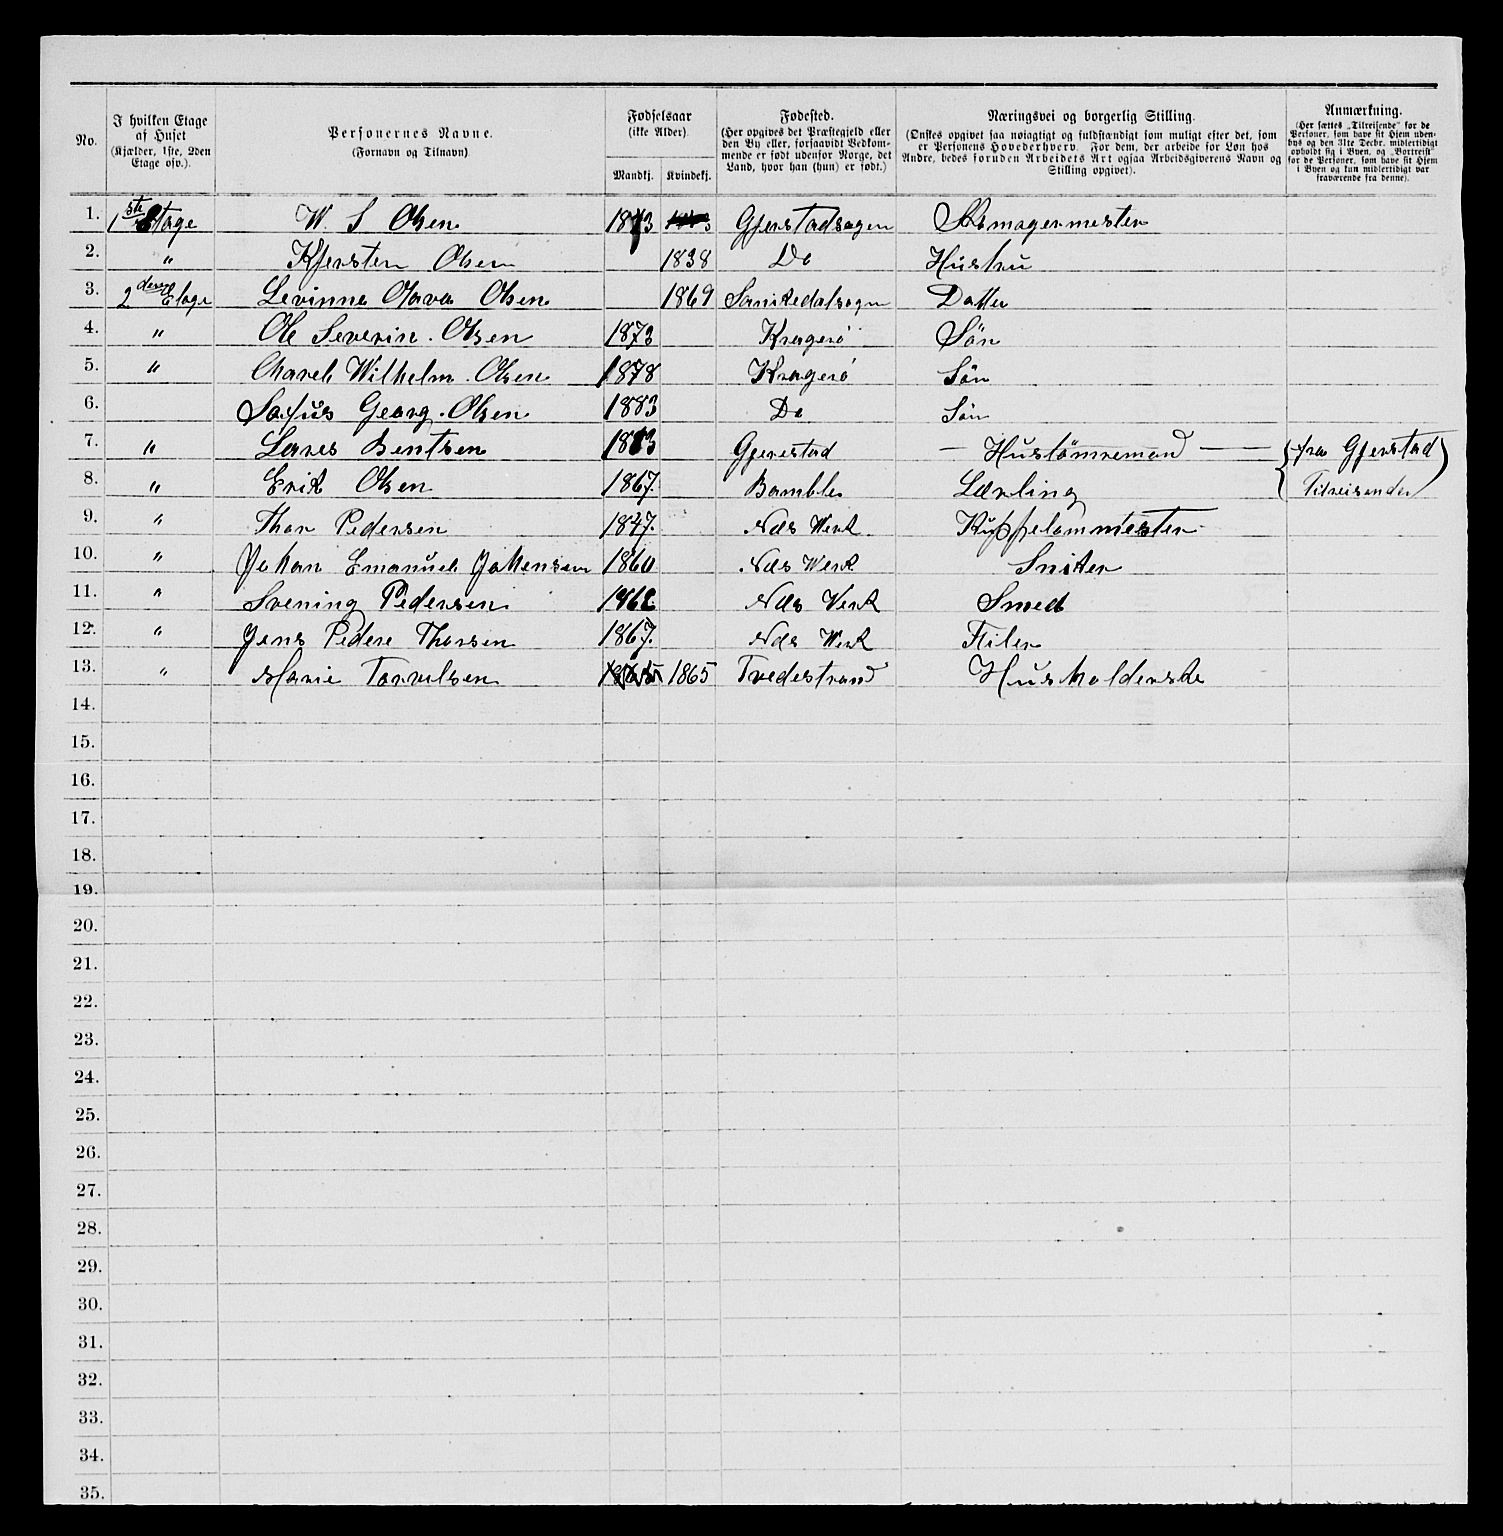 No.
I hvilken Etage
af Huset
(Kjælder, 1ste, 2den
Etage osv.).
Personernes Navne.
(Fornavn og Tilnavn)
Fødselsaar
(ikke Alder).
Mandkj. Kvindekj.
Fødested.
(Her opgives det Præstegjeld eller
den By eller, forsaavidt Vedkom-
mende er født udenfor Norge, det
Land, hvor han (hun) er født.)
Næringsvei og borgerlig Stilling.
(Ønskes opgivet saa nøiagtigt og fuldstændigt som muligt efter det, som
er Personens Hovederhverv. For dem, der arbeide for Løn hos
Andre, bedes foruden Arbeidets Art ogsaa Arbeidsgiverens Navn og
Stilling opgivet).
Anmærkning.
(Her sættes „Tilreisende“ for de
Personer, som have sit Hjem uden-
bys og den 31te Decbr. midlertidigt
opholdt sig i Byen, og „Bortreist“
for de Personer, som have sit Hjem
i Byen og kun midlertidigt var
fraværende fra denne).
1. 1ste Etage W. S Olsen Gjerstadsogen Skomagermester
2. " Kjersten Olsen 1838 Do Hustru
3. 2den Etage Levinne Olava Olsen 1869 Sanikedalsogn Datter
4. " Ole Severin. Olsen 1873 Kragerö Sön
5. " Charel Wilhelm. Olsen 1878 Kragerö Sön
6. Georg. Olsen 1883 Do Sön
7. " Lares Bentsen Gjerestad — Hustömremand — fra Gjerstad
8. " Erik Olsen 1867. Bamble Lærling Tilreisender
9. " Thor Pedersen 1847. Næs Werk
10. " Johan Emanuel Johensen 1860 Næs Werk Sniker
11. " Svening Pedersen Næs Verk Smed
12. " Jens Pedere Thorsen 1867. Næs Werk Filer
13. " Marie Torvelsen 1865 Tvedestrand Husholderske
14.
15.
16.
17.
18.
19.
20.
21.
22.
23.
24.
25.
26.
27.
28.
29.
30.
31.
32.
33.
34.
35.